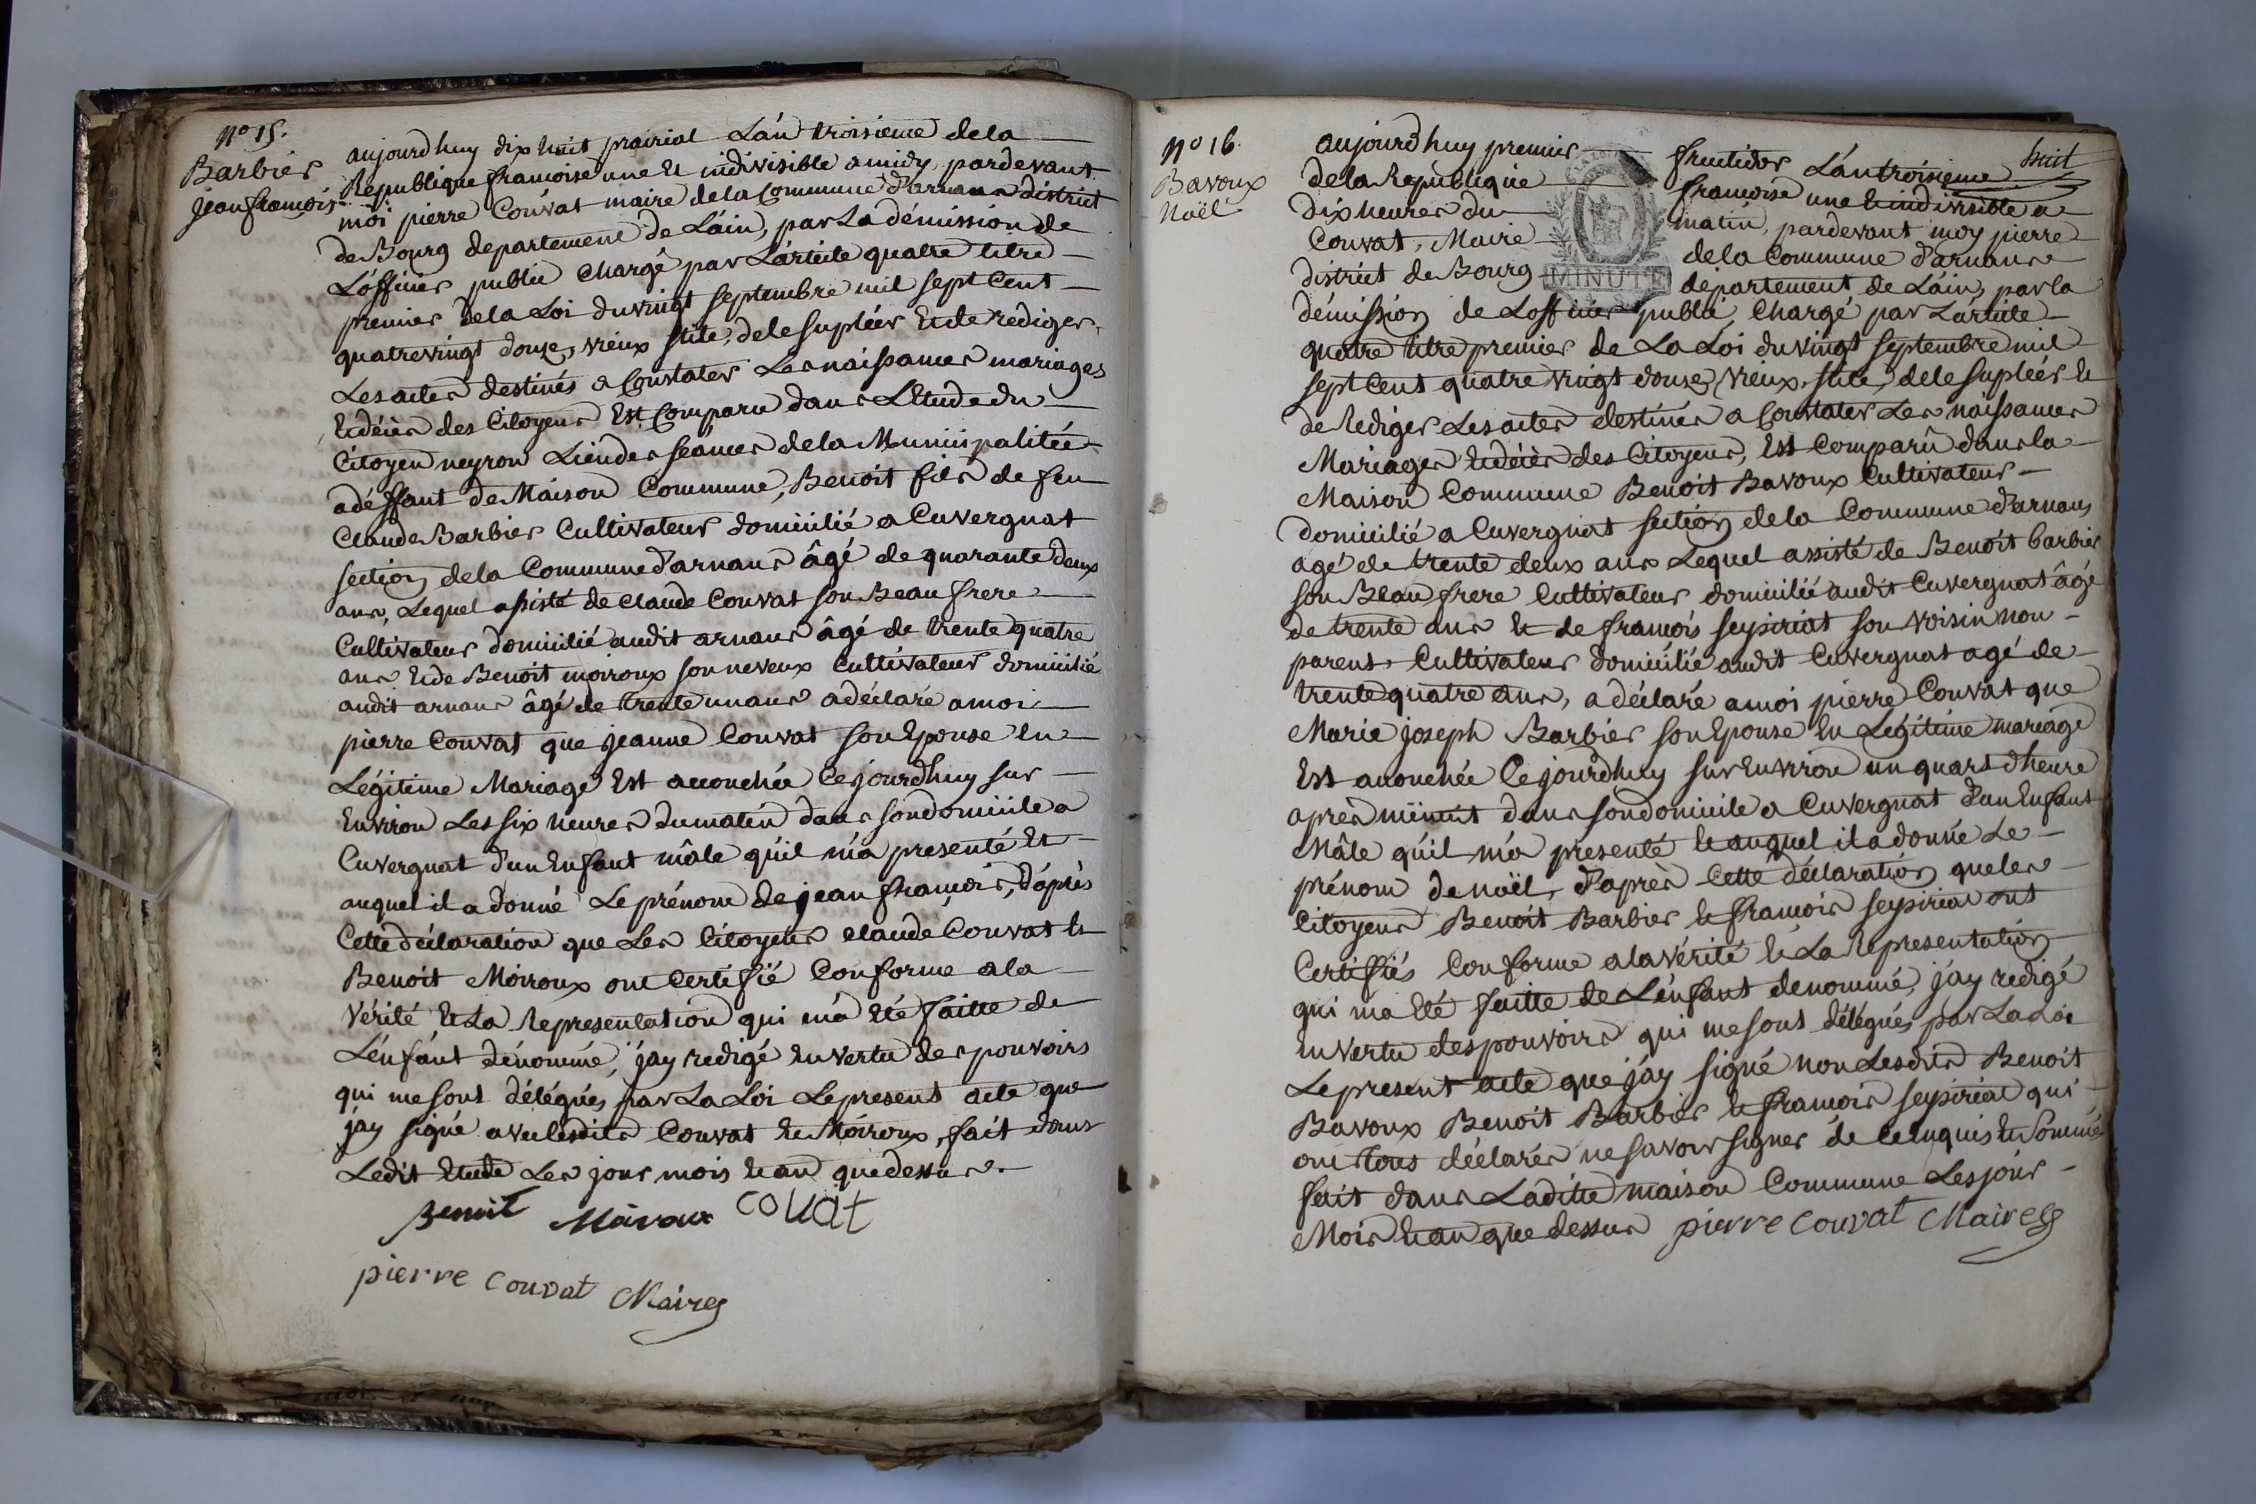 No 15.
Barbier
jean françois
aujourdhuy dix huit prairial L'an troisieme dela
Republique francoise une et indivisible a midy, pardevant
moi pierre Couvat maire dela Commune d'arnans district
de Bourg departement de L'ain, par La démission de
L'officier public Chargé par L'article quatre titre
premier de la Loi du vingt septembre mil sept Cent
quatrevingt douze, vieux stile, de le supléer et de rediger
Les actes destinés a Constater Les naissances mariages
et décès des Citoyens Est Comparu dans L'Etude du
Citoyen neyron Lieu des séances de la Municipalitée
a déffaut de Maison Commune, Benoit fils de feu
Claude Barbier Cultivateur domicilié a Cuvergnat
section de la Commune d'arnans âgé de quarante deux
ans, Lequel assisté de Claude Couvat son Beau frere
Cultivateur domicilié audit arnans âgé de trente quatre
ans et de Benoit moiroux son neveux Cultivateur domicilié
audit arnans âgé de trente un ans a déclaré a moi
pierre Couvat que jeanne Couvat son Epouse en
Légitime Mariage Est accouchée Cejourdhuy sur
Environ Les six heures du matin dans son domicile a
Cuvergnat d'un Enfant mâle qu'il m'a presenté et
auquel il a donné Le prénom de jean françois, d'après
Cette déclaration que Les Citoyens Claude Couvat et
Benoit Moiroux ont Certifié Conforme a la
Vérité et La Representation qui m'a été faitte de
L'enfant dénommé, j'ay redigé en vertu des pouvoirs
qui me sont délégués, par La Loi Le present acte que
j'ay signé avec lesdits Couvat et Moiroux, fait dans
Ledit Etude Les jour mois et an que dessus.
Benoit Moiroux Couat
pierre Couvat Maire
No 16.
Bavoux
Noël
huit
aujourdhuy premier fructidor L'an troisieme
de la Republique francoise une et indivisible a
dix heures du matin, pardevant moy pierre
Couvat, Maire de la Commune d'arnans
district de Bourg departement de L'ain, par la
MINUTE
démission de L'officier public, Chargé par L'article
quatre titre premier de La Loi du vingt septembre mil
sept Cent quatre vingt douze, vieux stile, de le supléer et
de Rediger Les actes destinés a Constater Les naissances
Mariages et décès des Citoyens, Est Comparû dans la
Maison Commune Benoit Bavoux Cultivateur
domicilié a Cuvergnat section de la Commune d'arnans
agé de trente deux ans Lequel assisté de Benoit barbier
son Beau frere Cultivateur domicilié audit Cuvergnat âgé
de trente ans et de francois seyssiriat son voisin non
parent, Cultivateur domicilié audit Cuvergnat agé de
trente quatre ans, a déclaré a moi pierre Couvat que
Marie joseph Barbier son Epouse en Légitime mariage
Est accouchée Cejourdhuy sur Environ un quart d'heure
après minuit dans son domicile a Cuvergnat d'un Enfant
Mâle qu'il m'a presenté et auquel il a donné Le
prénom de noël, d'après Cette déclaration que les
Citoyens Benoit Barbier et francois seyssiriat ont
Certifiés Conforme a la Vérité et La Representation
qui m'a été faitte de L'enfant denommé, j'ay redigé
en vertu des pouvoirs qui me sont délégués par La Loi
Le present acte que j'ay signé non Lesdits Benoit
Bavoux Benoit Barbier et francois seyssiriat qui
ont tous déclarés ne savoir signer de ce enquis et sommé
fait dans Laditte maison Commune Les jour
Mois et an que dessus pierre Couvat Maire